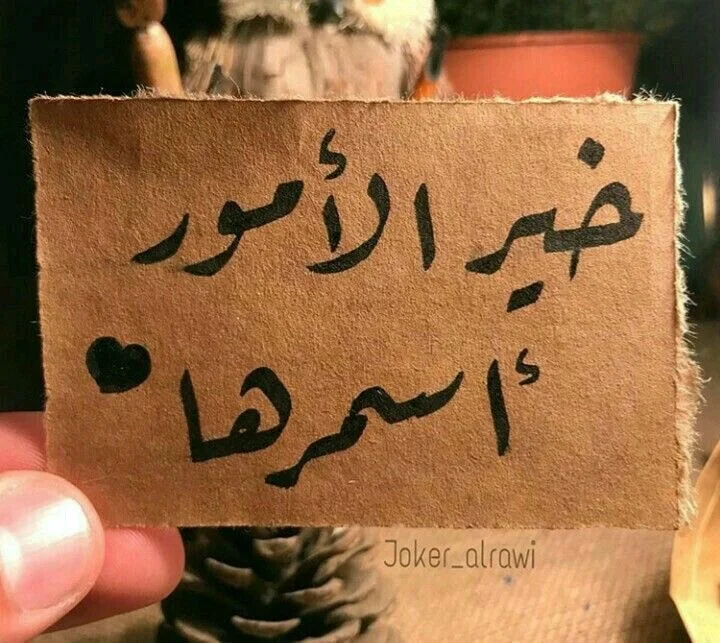 خير الأمور
أسمرها
Joker_alrawi